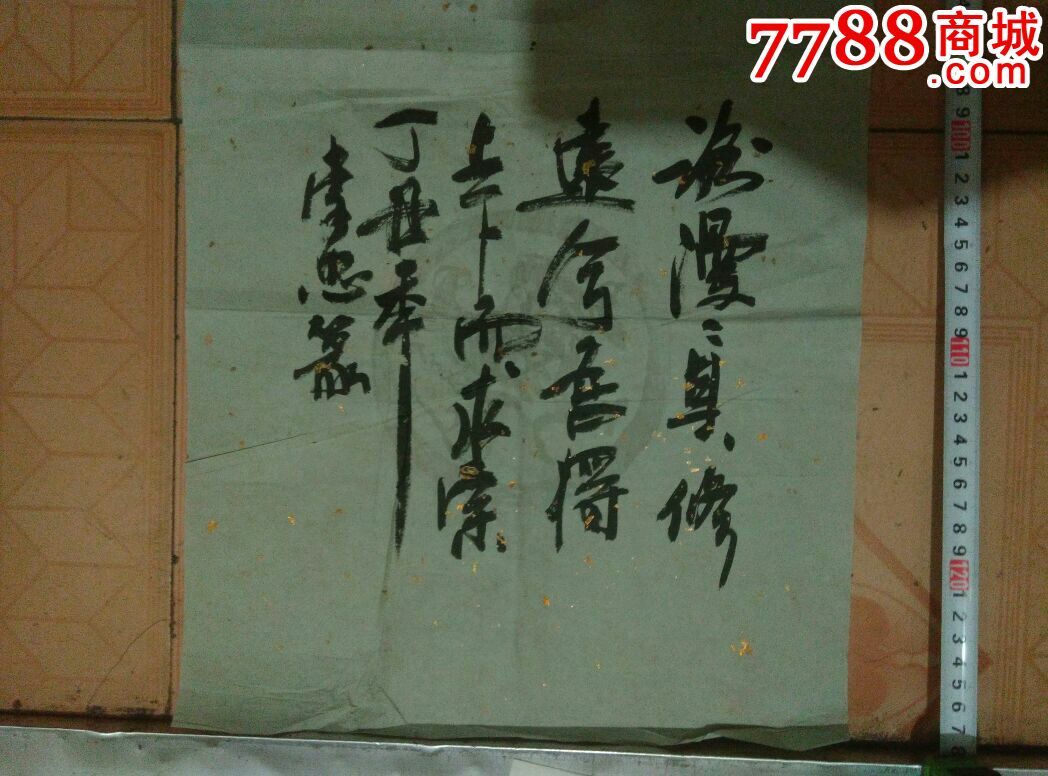 7788商城
.com
路漫〻其修
遠兮吾將
上下而求索
丁丑年
8 9 100 1 2 3 4 5 6 7 8 9 110 1 2 3 4 5 6 7 8 9 120 1 2 3 4 5 6 7 8